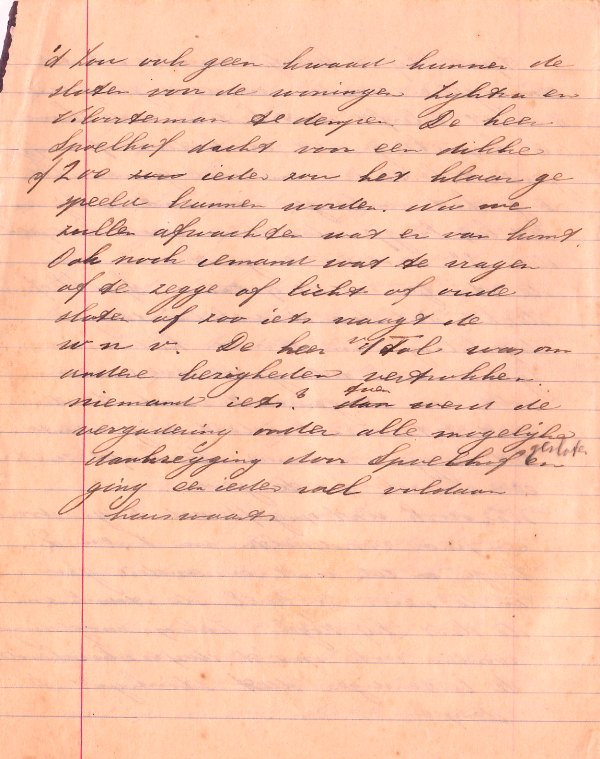 'd Zou ook geen kwaad kunnen de
sloten voor de woningen Zijlstra en
Kloosterman te dempen. De heer
Spoelhof dacht voor een dikke
f 200 ieder zou het klaar ge
speeld kunnen worden. Nu we
zullen afwachten wat er van komt.
Ook noch iemand wat te vragen
of te zegge of licht of oude
sloten of zoo iets vraagt de
w n v. De heer Tol was om
andere bezigheden vertrokken.
niemand iets? toen werd de
vergadering onder alle mogelijke
dankzegging door Spoelhof gesloten en
ging een ieder wel voldaan
huiswaarts